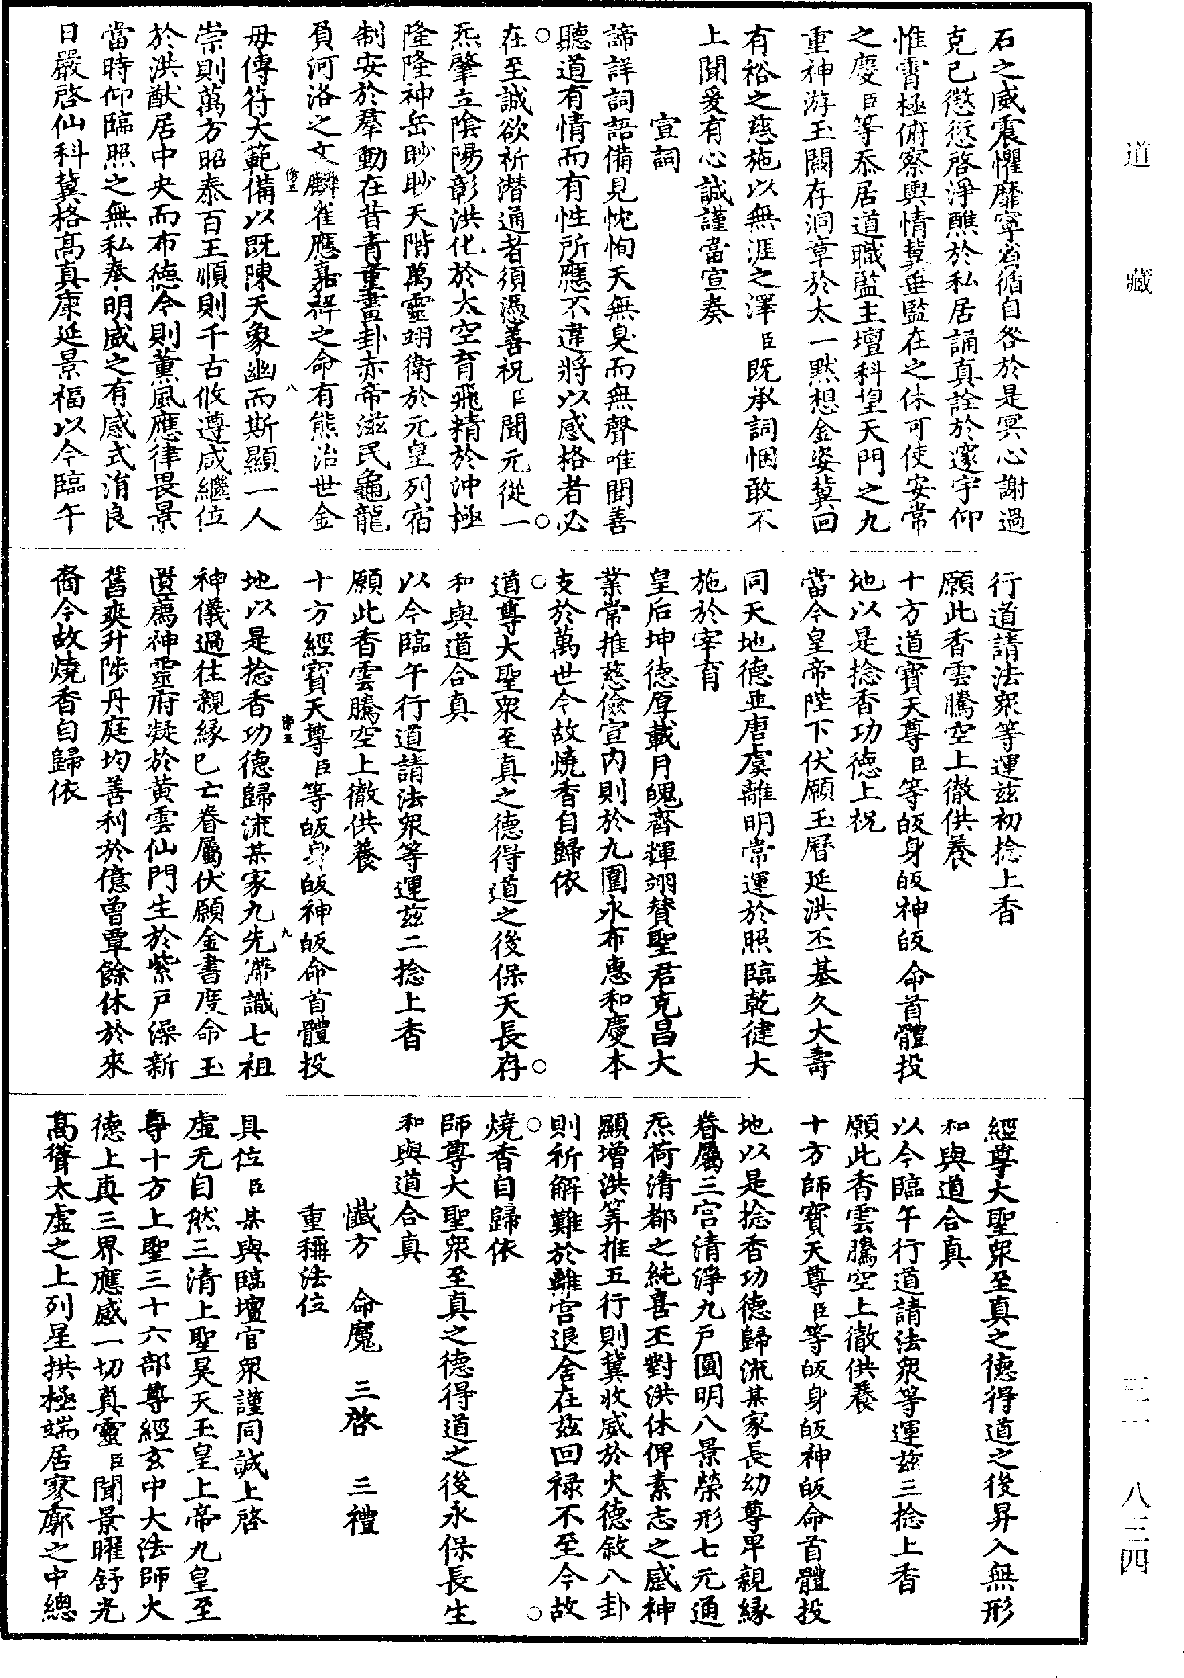 道藏
三一 八三四
石之威震懼靡寧省循自咎於是冥心謝過
克已懲愆啓淨醮於私居誦真詮於邃宇仰
惟霄極俯察輿情冀垂監在之休可使安常
之慶臣等忝居道職監主壇科望天門之九
重神游玉闕存洞章於太一黙想金姿冀回
有裕之慈施以無涯之澤臣既承詞悃敢不
上聞爰有心誠謹當宣奏
宣詞
諦詳詞語備見忱恂天無臭而無聲唯聞善
聽道有情而有性所應不違將以感格者必
在至誠欲祈潛通者須憑善祝臣聞元從一
炁肇立陰陽彰洪化於太空育飛精於沖極
隆隆神岳眇眇天階萬靈翊衛於元皇列宿
制安於羣動在昔青童畫卦赤帝滋民龜龍
負河洛之文麟雀應嘉祥之命有熊治世金
八
母傳符大範備以既陳天象幽而斯顯一人
崇則萬方昭泰百王順則千古攸遵咸繼位
於洪猷居中央而布德今則薰風應律畏景
當時仰臨照之無私奉明威之有感式涓良
日嚴啓仙科冀格高真康延景福以今臨午
行道請法衆等運玆初捻上香
願此香雲騰空上徹供養
十方道寶天尊臣等皈身皈神皈命首體投
地以是捻香功德上祝
當今皇帝陛下伏願玉曆延洪丕基久大壽
同天地德並唐虞離明常運於照臨乾健大
施於宰育
皇后坤德厚載月魄齊輝翊賛聖君克昌大
業常推慈儉宣內則於九圍永布惠和慶本
支於萬世今故燒香自歸依
道尊大聖衆至真之德得道之後保天長存
和與道合真
以今臨午行道請法衆等運玆二捻上香
願此香雲騰空上徹供養
十方經寶天尊臣等皈身皈神皈命首體投
九
地以是捻香功德歸流某家九先滯識七祖
神儀過往親緣已亡眷屬伏願金書度命玉
匱薦神靈府凝於黃雲仙門生於紫戶澡新
舊爽升陟丹庭均善利於億曾覃餘休於來
裔今故燒香自歸依
經尊大聖衆至真之德得道之後昇入無形
和與道合真
以今臨午行道請法衆等運玆三捻上香
願此香雲騰空上徹供養
十方師寶天尊臣等皈身皈神皈命首體投
地以是捻香功德歸流某家長幼尊卑親緣
眷屬三宮清淨九戶圓明八景榮形七元通
炁荷清都之純熹丕對洪休俾素志之感神
顯增洪筭推五行則冀收威於火德敘八卦
則祈解難於離宮退舍在玆回祿不至今故
燒香自歸依
師尊大聖衆至真之德得道之後永保長生
和與道合真
懺方 命魔 三啓 三禮
重稱法位
具位臣某與臨壇官衆謹同誠上啓
虛无自然三清上聖昊天玉皇上帝九皇至
尊十方上聖三十六部尊經玄中大法師火
德上真三界應感一切真靈臣聞景曜舒光
高聳太虛之上列星拱極端居寥廓之中總